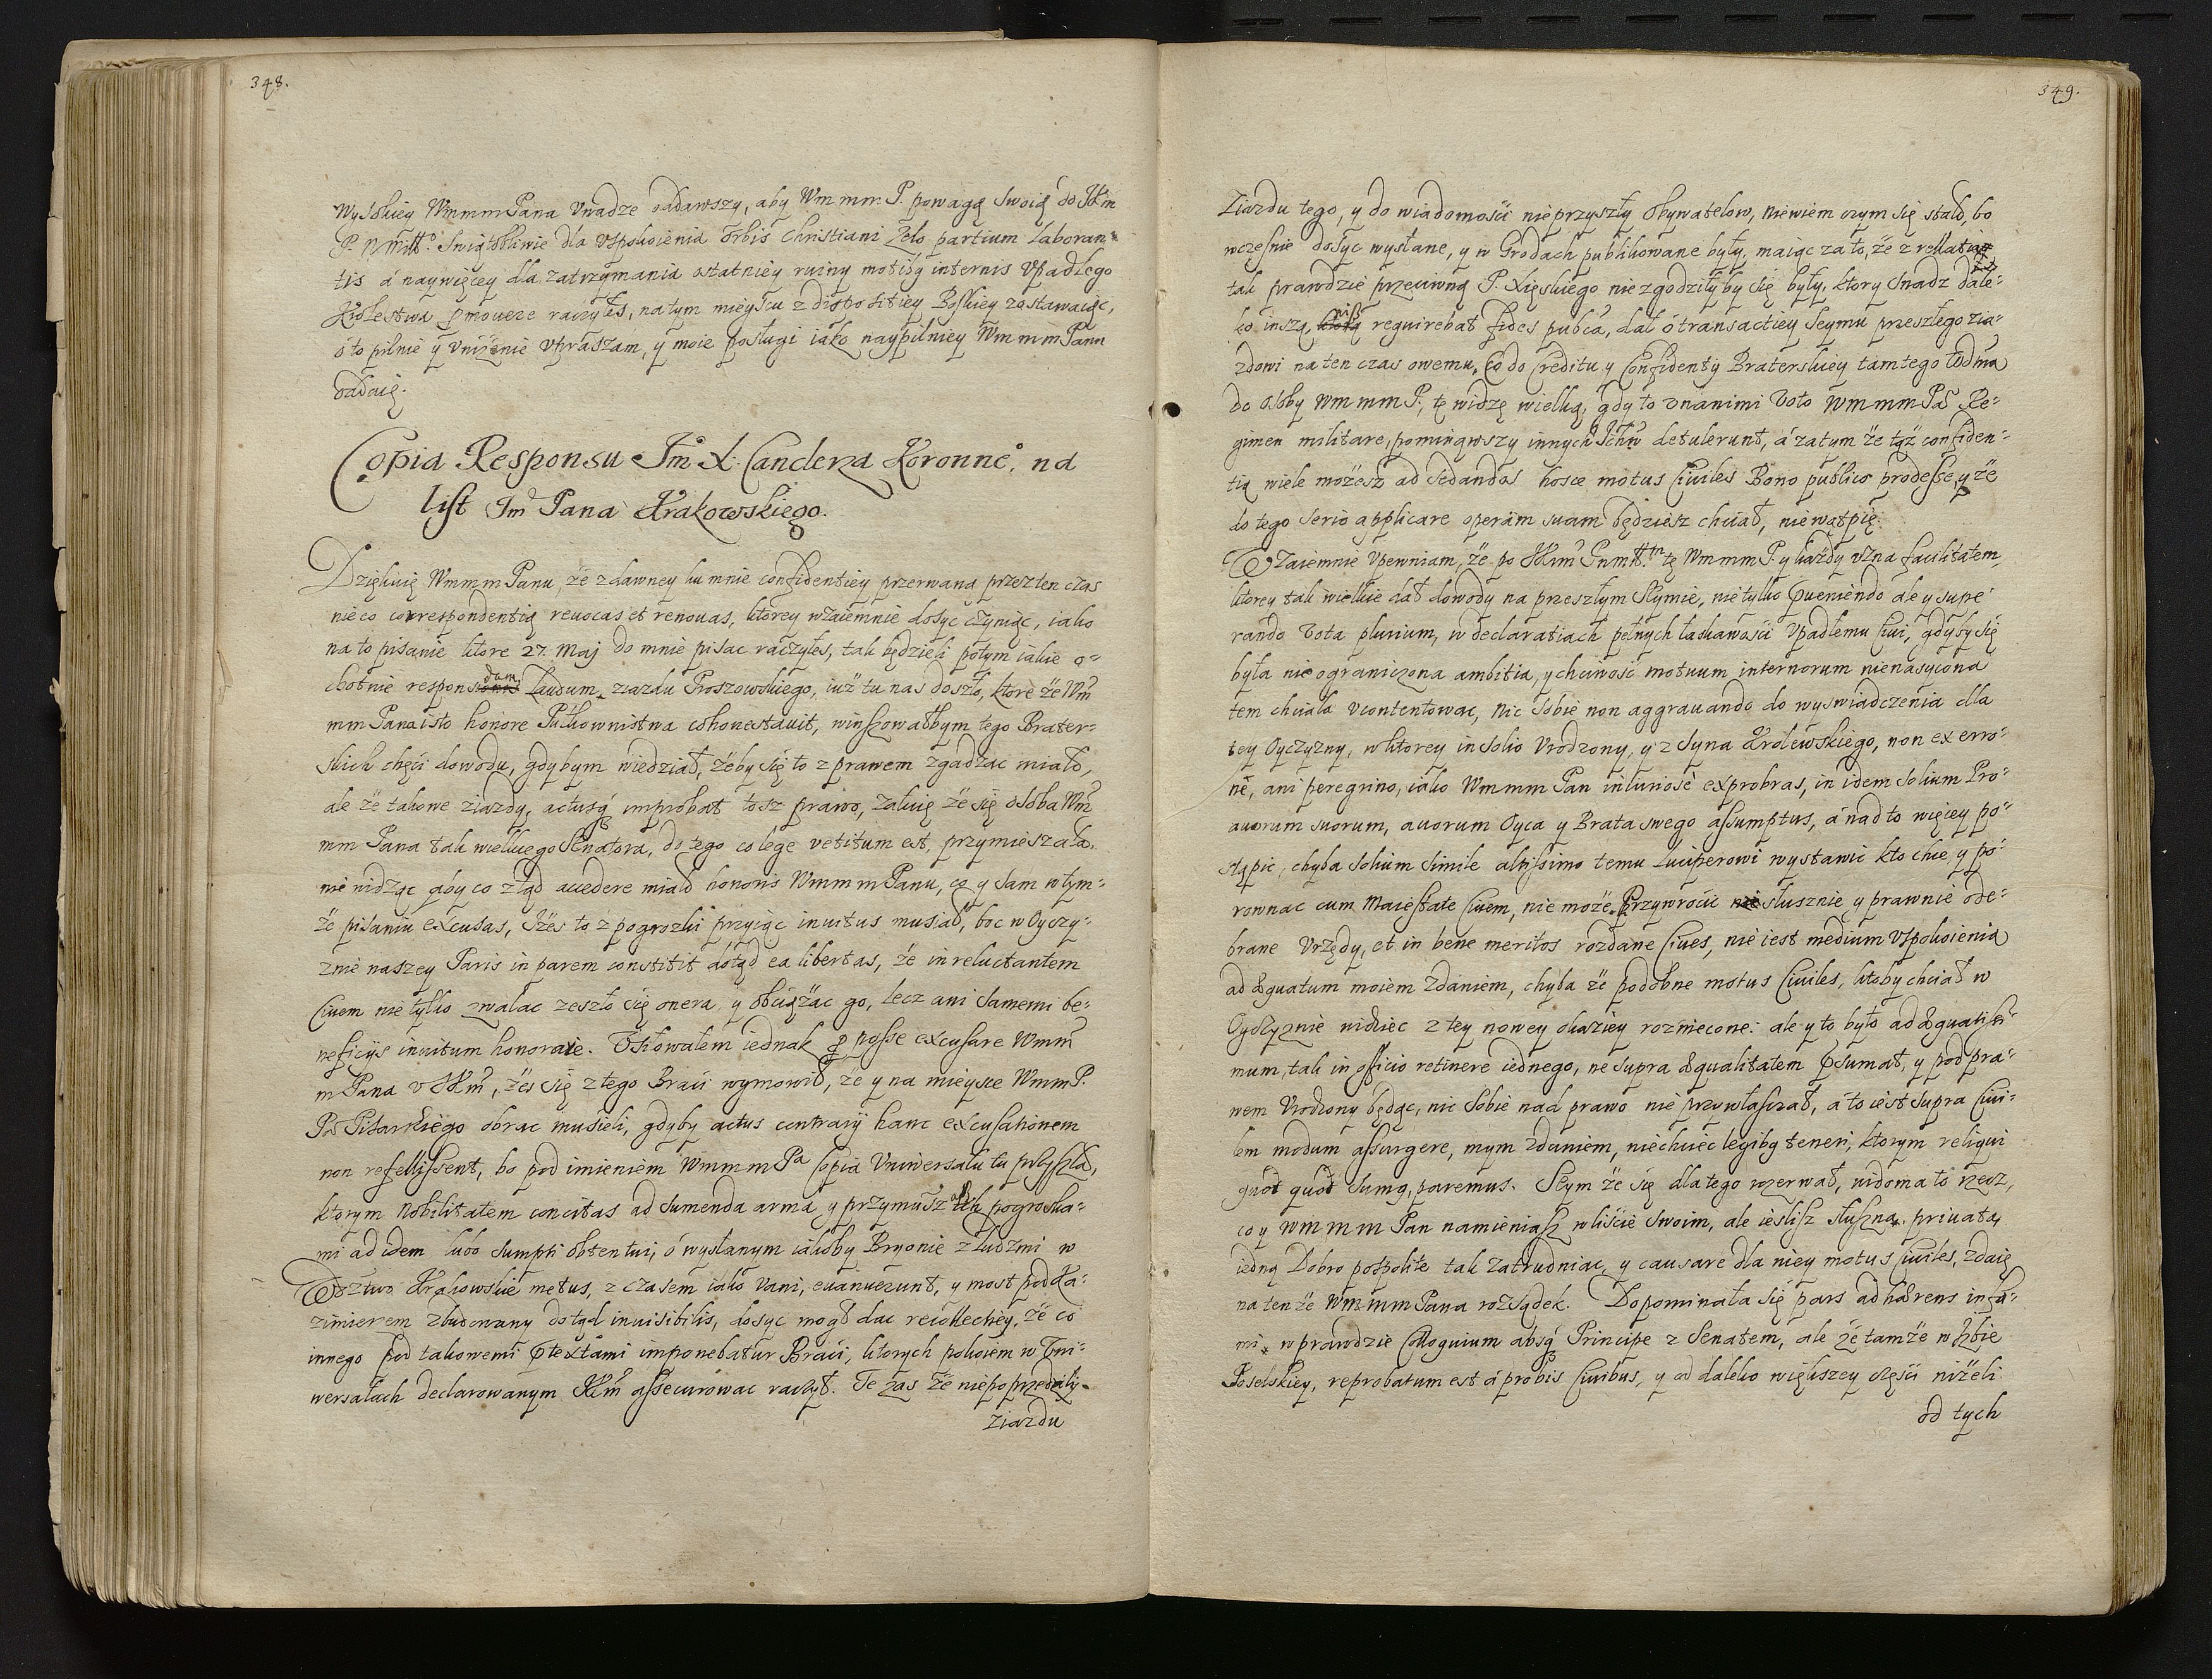 348.
Wysokiey Wmmm Pana Uwadze oddawszy, aby Wm mm P. powagą Swoią do JKm
P. N. Miłłº Swiątobliwie dla Uspokoienia Orbis Christiani Zelo partium Laboran,
tis á naywięcey dla zatrzymania ostatniey ruiny motibq internis Upadłego
Krolestwa pmovere raczyłes, na tym mieyscu z dispositiey Boskiey zostawaiąc,
ó to pilnie y Unizenie Upraszam, y moie posługi iako naypilniey Wmmm Panu
oddaię.
Copia Responsu Jm X. Canclerza Koronneº, na
list Jm Pana Krakowskiego.
Dziękuię Wmmm Panu, że z dawney ku mnie confidentiey przerwaną przez ten czas
nieco correspondentią revocas et renovas, ktorey wzaiemnie dosyć czyniąc, iako
na to pisanie ktore 27. Maj do mnie pisac raczyłes, tak będzieli potym iakie o=
chotnie respondam. Laudum ziazdu Proszowskiego, iuż tu nas doszło, ktore że Wm
mm Pana isto honore Pułkownistwa cohonestavit, winszowałbym tego Brater=
skich chęci dowodu, gdybym wiedział, żeby się to z prawem zgadzac miało,
ale że takowe ziazdy, actusq improbat tosz prawo, żałuię że się osoba Wm
mm Pana tak wielkiego Senatora, do tego co lege vetitum est, przymieszała.
nie widząc áby co ztąd accedere miało honoris Wmmm Panu, co y sam w tym=
że pisaniu excusas, iżes to z pogrozki przyiąc invitus musiał, boc w Oyczy=
znie naszey Paris in parem constitit dotąd ea libertas, że in reluctantem
Civem nie tylko zwalac zeszło się onera y obciążac go, lecz ani samemi be=
neficijs invitum honorare. Usiłowałem iednak p posse excusare Wmm
m Pana u JKm, żes się z tego Braci wymowił, że y na mieysce WmmP.
Pª Pisarskiego obrac musieli, gdyby actus contrarij hanc excusationem
non refellissent, bo pod imieniem Wmmm Pª Copia Uniwersału tu przyszła,
ktorym Nobilitatem concitas ad sumenda arma y przymuszasz pogroska=
mi ad idem lubo sumpti obtentui, ó wysłanym iakoby Bryonie z ludzmi w
Wdztwo Krakowskie metus, z czasem iako vani, evanuerunt, y most pod Ka=
zimierzem zbudowany dotąd invisibilis, dosyc mogł dac recollectiey, że co
innego pod takowemi ptextami imponebatur Braci, ktorych pokoiem w Uni=
wersałach declarowanym JKm assecurowac raczył. Te zas że nie poprzedziły
ziazdu
349.
Ziazdu tego, y do wiadomosci nie przyszły Obywatelow, niewiem czym się stało, bo
wczesnie dosyc wysłane, y w Grodach publikowane były, maiąc za to, że z rellatią
tak prawdzie przeciwną P. Xięskiego nie zgodziłyby się były, ktory snadz dale=
ko inszą, niß requirebat fides pubca, dał ó transactiey Seymu przeszłego zia=
zdowi na ten czas owemu, Co do Creditu y Confidentij Braterskiey tamtego Wdztwa
do osoby Wm mm P., tę widzę wielką, gdy to unanimi Voto Wmmm Pª Re=
gimen militare, pominąwszy innych Ichm detulerunt, á zatym że tąż confiden=
tią wiele możesz ad sedandos hosce motus Civiles Bono publico prodesse, y że
do tego serio applicare operam suam będziesz chciał, nie wątpię.
Wzaiemnie Upewniam, że po JKmi Pnmłtm tę Wmmm P. y każdy uzna facilitatem,
ktorey tak wielkie dał dowody na przeszłym Seymie, nie tylko pveniendo ale y supe=
rando Vota plurium, w declaratiach pełnych łaskawosci Upadłemu Civi, gdyby się
była nie ograniczona ambitia, y chciwość motuum internorum nienasycona
tem chciała ucontentowac, Nic sobie non aggravando do wyswiadczenia dla
tey Oyczyzny, w ktorey in solio Urodzony, y z Syna Krolewskiego, non ex erro=
ne, ani peregrino, iako Wmmm Pan iniuriose exprobras, in idem solium Pro=
avorum suorum, avorum Oyca y Brata swego assumptus, á nad to więcey po=
stąpic, chyba solium simile altissimo temu Luciperowi wystawic kto chce, y po=
rownac cum Maiestate Civem, nie może. Przywrocic słusznie y prawnie ode=
brane Urzędy, et in bene meritos rozdane Cives, nie iest medium Uspokoienia
adæquatum moiem zdaniem, chyba że podobne motus Civiles, ktoby chciał w
Oyczyznie widziec z tey nowey okaziey rozniecone: ale y to było adæquatissi=
mum, tak in officio retinere iednego, ne supra æqualitatem psumat, y pod pra=
wem Urodzony będąc, nic sobie nad prawo nie przywłaszczał, á to iest supra Civi=
lem modum assurgere, mym zdaniem, niechciec legibq teneri, ktorym reliqui
quot quot sumq, paremus. Seym że się dla tego rozerwał, widoma to rzecz,
co y Wmmm Pan namieniasz w liscie swoim, ale ieslisz słuszna. privatą
iedną Dobro pospolite tak zatrudniac, y causare dla niey motus Civiles, zdaię
na ten że Wmmm Pana rozsądek. Dopominała się pars adhærens infa=
mi. wprawdzie Colloquium absq Principe z Senatem, ale że tamże w Izbie
Poselskiey, reprobatum est á probis Civibus, y od daleko większey częsci niżeli
od tych